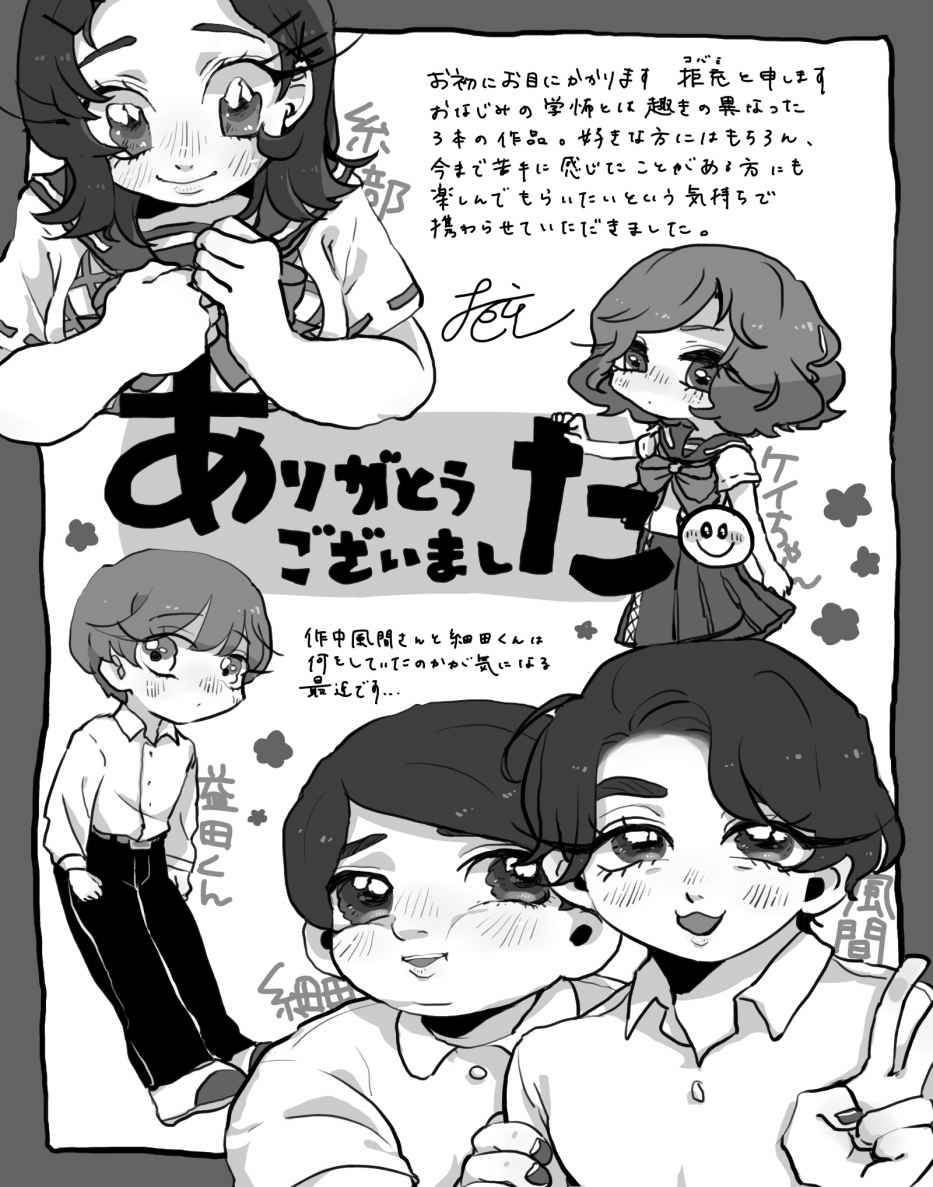 お初にお目にかかります 拒充と申します
コバミ
おなじみの学怖とは趣きの異なった
3本の作品。好きな方にはもちろん、
今まで苦手に感じたことがある方にも
楽しんでもらいたいという気持ちで
携わらせていただきました。
ありがとう
ございました
作中風間さんと細田くんは
何をしていたのかが気になる
最近です...
ケイちゃん
益田くん
細田
風間
部